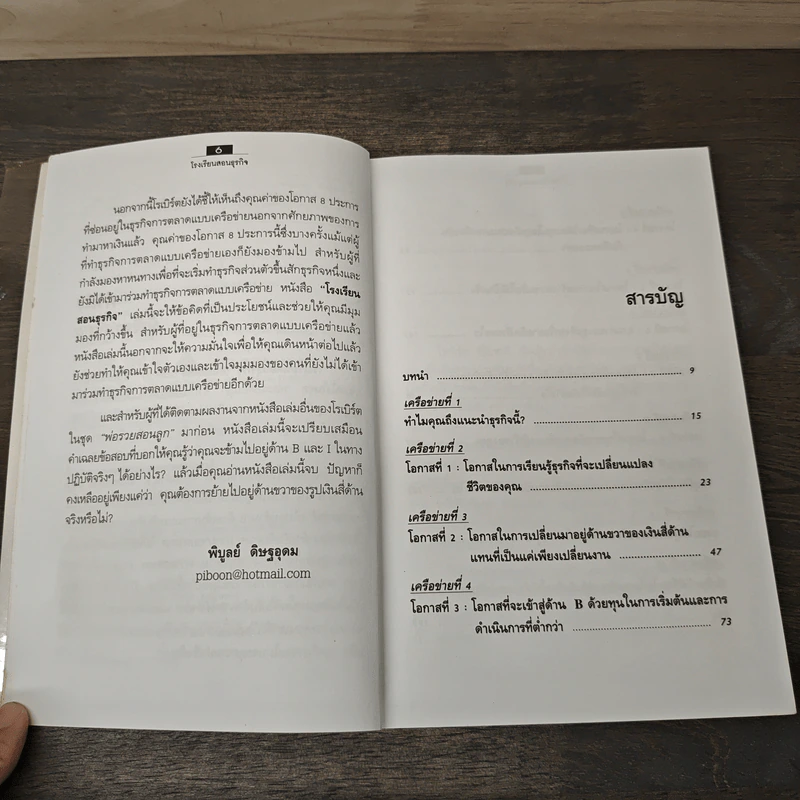 6
โรงเรียนสอนธุรกิจ
นอกจากนี้โรเบิร์ตยังได้ชี้ให้เห็นถึงคุณค่าของโอกาส 8 ประการ
ที่ซ่อนอยู่ในธุรกิจการตลาดแบบเครือข่ายนอกจากศักยภาพของการ
ทำมาหาเงินแล้ว คุณค่าของโอกาส 8 ประการนี้ซึ่งบางครั้งแม้แต่ผู้
ที่ทำธุรกิจการตลาดแบบเครือข่ายเองก็ยังมองข้ามไป สำหรับผู้ที่
กำลังมองหาหนทางเพื่อที่จะเริ่มทำธุรกิจส่วนตัวขึ้นสักธุรกิจหนึ่งและ
ยังมิได้เข้ามาร่วมทำธุรกิจการตลาดแบบเครือข่าย หนังสือ "โรงเรียน
สอนธุรกิจ" เล่มนี้จะให้ข้อคิดที่เป็นประโยชน์และช่วยให้คุณมีมุม
มองที่กว้างขึ้น สำหรับผู้ที่อยู่ในธุรกิจการตลาดแบบเครือข่ายแล้ว
หนังสือเล่มนี้นอกจากจะให้ความมั่นใจเพื่อให้คุณเดินหน้าต่อไปแล้ว
ยังช่วยทำให้คุณเข้าใจตัวเองและเข้าใจมุมมองของคนที่ยังไม่ได้เข้า
มาร่วมทำธุรกิจการตลาดแบบเครือข่ายอีกด้วย
และสำหรับผู้ที่ได้ติดตามผลงานจากหนังสือเล่มอื่นของโรเบิร์ต
ในชุด "พ่อรวยสอนลูก" มาก่อน หนังสือเล่มนี้จะเปรียบเสมือน
คำเฉลยข้อสอบที่บอกให้คุณรู้ว่าคุณจะข้ามไปอยู่ด้าน B และ I ในทาง
ปฏิบัติจริงๆ ได้อย่างไร? แล้วเมื่อคุณอ่านหนังสือเล่มนี้จบ ปัญหาก็
คงเหลืออยู่เพียงแค่ว่า คุณต้องการย้ายไปอยู่ด้านขวาของรูปเงินสี่ด้าน
จริงหรือไม่?
พิบูลย์ ดิษฐอุดม
piboon@hotmail.com
สารบัญ
บทนำ ........ 9
เครือข่ายที่ 1
ทำไมคุณถึงแนะนำธุรกิจนี้? ........ 15
เครือข่ายที่ 2
โอกาสที่ 1 : โอกาสในการเรียนรู้ธุรกิจที่จะเปลี่ยนแปลง
ชีวิตของคุณ ........ 23
เครือข่ายที่ 3
โอกาสที่ 2 : โอกาสในการเปลี่ยนมาอยู่ด้านขวาของเงินสี่ด้าน
แทนที่เป็นแค่เพียงเปลี่ยนงาน ........ 47
เครือข่ายที่ 4
โอกาสที่ 3 : โอกาสที่จะเข้าสู่ด้าน B ด้วยทุนในการเริ่มต้นและการ
ดำเนินการที่ต่ำกว่า ........ 73